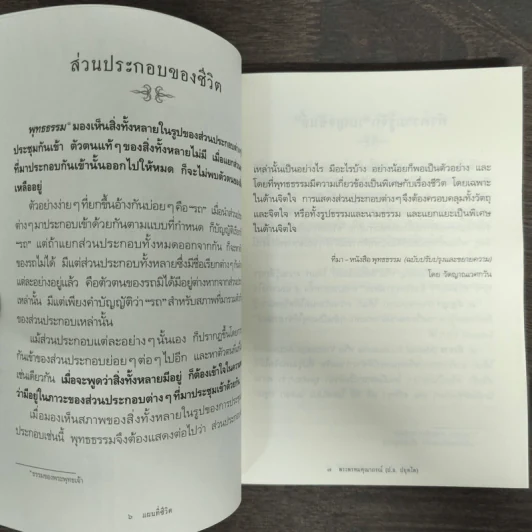 ส่วนประกอบของชีวิต
พุทธธรรม* มองเห็นสิ่งทั้งหลายในรูปของส่วนประกอบต่างๆ
ประชุมกันเข้า ตัวตนแท้ๆ ของสิ่งทั้งหลายไม่มี เมื่อแยกส่วน
ที่มาประกอบกันเข้านั้นออกไปให้หมด ก็จะไม่พบตัวตน
เหลืออยู่
ตัวอย่างง่ายๆ ที่ยกขึ้นอ้างกันบ่อยๆ คือ "รถ" เมื่อนำส่วน
ต่างๆ มาประกอบเข้าด้วยกันตามแบบที่กำหนด ก็บัญญัติ
"รถ" แต่ถ้าแยกส่วนประกอบทั้งหมดออกจากกัน ก็จะ
ของรถไม่ได้ มีแต่ส่วนประกอบทั้งหลายซึ่งมีชื่อเรียกต่างๆ กัน
แต่ละอย่างอยู่แล้ว คือตัวตนของรถมิได้มีอยู่ต่างหากจาก
เหล่านั้น มีแต่เพียงคำบัญญัติว่า "รถ" สำหรับสภาพที่มารวม
ของส่วนประกอบเหล่านั้น
แม้ส่วนประกอบแต่ละอย่างๆ นั้นเอง ก็ปรากฏขึ้นโดย
กันเข้าของส่วนประกอบย่อยๆ ต่อๆ ไปอีก และหาตัวตน
เช่นเดียวกัน เมื่อจะพูดว่าสิ่งทั้งหลายมีอยู่ ก็ต้องเข้าใจใน
ว่ามีอยู่ในภาวะของส่วนประกอบต่างๆ ที่มาประชุมเข้าด้วยกัน
เมื่อมองเห็นสภาพของสิ่งทั้งหลายในรูปของการ
ประกอบเช่นนี้ พุทธธรรมจึงต้องแสดงต่อไปว่า ส่วน
*ธรรมของพระพุทธเจ้า
๖ แผนที่ชีวิต
เหล่านั้นเป็นอย่างไร มีอะไรบ้าง อย่างน้อยก็พอเป็นตัวอย่าง และ
โดยที่พุทธธรรมมีความเกี่ยวข้องเป็นพิเศษกับเรื่องชีวิต โดยเฉพาะ
ในด้านจิตใจ การแสดงส่วนประกอบต่างๆ จึงต้องครอบคลุมทั้งวัตถุ
และจิตใจ หรือทั้งรูปธรรมและนามธรรม และแยกแยะเป็นพิเศษ
ในด้านจิตใจ
ที่มา - หนังสือ พุทธธรรม (ฉบับปรับปรุงและขยายความ)
โดย รัตญาณเวศกวัน
๗ พระพรหมคุณาภรณ์ (ป.อ. ปยุตฺโต)